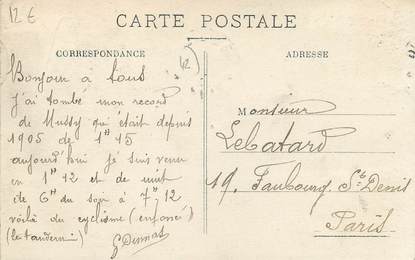 12 €
CARTE POSTALE
CORRESPONDANCE
ADRESSE
Bonjour à tous
j'ai tombé mon record
de Mussy qui était depuis
1905 de 1h 15
aujourd'hui je suis venu
en 1h 12 et de nuit
de 6h du soir à 7h,12
voilà du cyclisme (enfoncé)
Monsieur
Lebatard
19, Faubourg St Denis
Paris